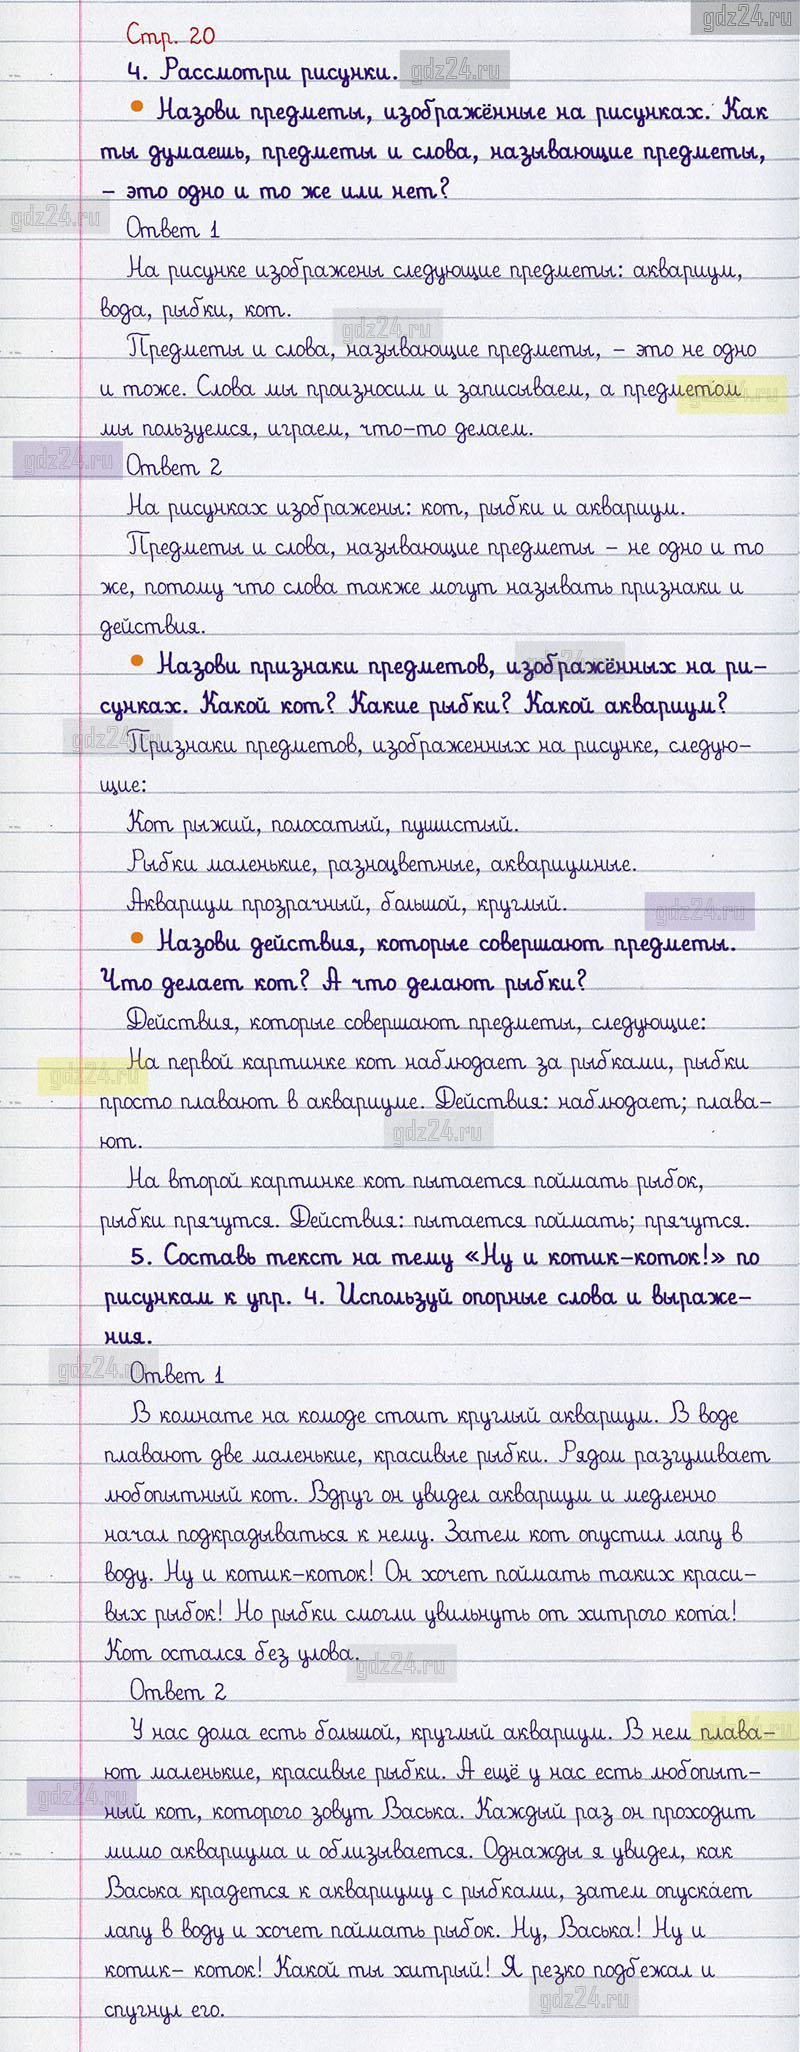 gdz24.ru
Стр. 20
4. Рассмотри рисунки.
gdz24.ru
• Назови предметы, изображённые на рисунках. Как
ты думаешь, предметы и слова, называющие предметы,
– это одно и то же или нет?
gdz24.ru
Ответ 1
На рисунке изображены следующие предметы: аквариум,
вода, рыбки, кот.
gdz24.ru
Предметы и слова, называющие предметы, – это не одно
и тоже. Слова мы произносим и записываем, а предметом
gdz24.ru
мы пользуемся, играем, что-то делаем.
gdz24.ru
Ответ 2
На рисунках изображены: кот, рыбки и аквариум.
Предметы и слова, называющие предметы – не одно и то
же, потому что слова также могут называть признаки и
действия.
gdz24.ru
• Назови признаки предметов, изображённых на ри-
сунках. Какой кот? Какие рыбки? Какой аквариум?
gdz24.ru
Признаки предметов, изображенных на рисунке, следую-
щие:
Кот рыжий, полосатый, пушистый.
Рыбки маленькие, разноцветные, аквариумные.
Аквариум прозрачный, большой, круглый.
gdz24.ru
• Назови действия, которые совершают предметы.
Что делает кот? А что делают рыбки?
Действия, которые совершают предметы, следующие:
На первой картинке кот наблюдает за рыбками, рыбки
gdz24.ru
просто плавают в аквариуме. Действия: наблюдает; плава-
ют.
gdz24.ru
На второй картинке кот пытается поймать рыбок,
рыбки прячутся. Действия: пытается поймать; прячутся.
5. Составь текст на тему «Ну и котик-коток!» по
рисункам к упр. 4. Используй опорные слова и выраже-
ния.
gdz24.ru
Ответ 1
В комнате на комоде стоит круглый аквариум. В воде
плавают две маленькие, красивые рыбки. Рядом разгуливает
любопытный кот. Вдруг он увидел аквариум и медленно
начал подкрадываться к нему. Затем кот опустил лапу в
воду. Ну и котик-коток! Он хочет поймать таких краси-
вых рыбок! Но рыбки смогли увильнуть от хитрого кота!
Кот остался без улова.
gdz24.ru
Ответ 2
У нас дома есть большой, круглый аквариум. В нем плава-
gdz24.ru
ют маленькие, красивые рыбки. А ещё у нас есть любопыт-
gdz24.ru
ный кот, которого зовут Васька. Каждый раз он проходит
мимо аквариума и облизывается. Однажды я увидел, как
Васька крадется к аквариуму с рыбками, затем опускает
лапу в воду и хочет поймать рыбок. Ну, Васька! Ну и
котик- коток! Какой ты хитрый! Я резко подбежал и
спугнул его.
gdz24.ru